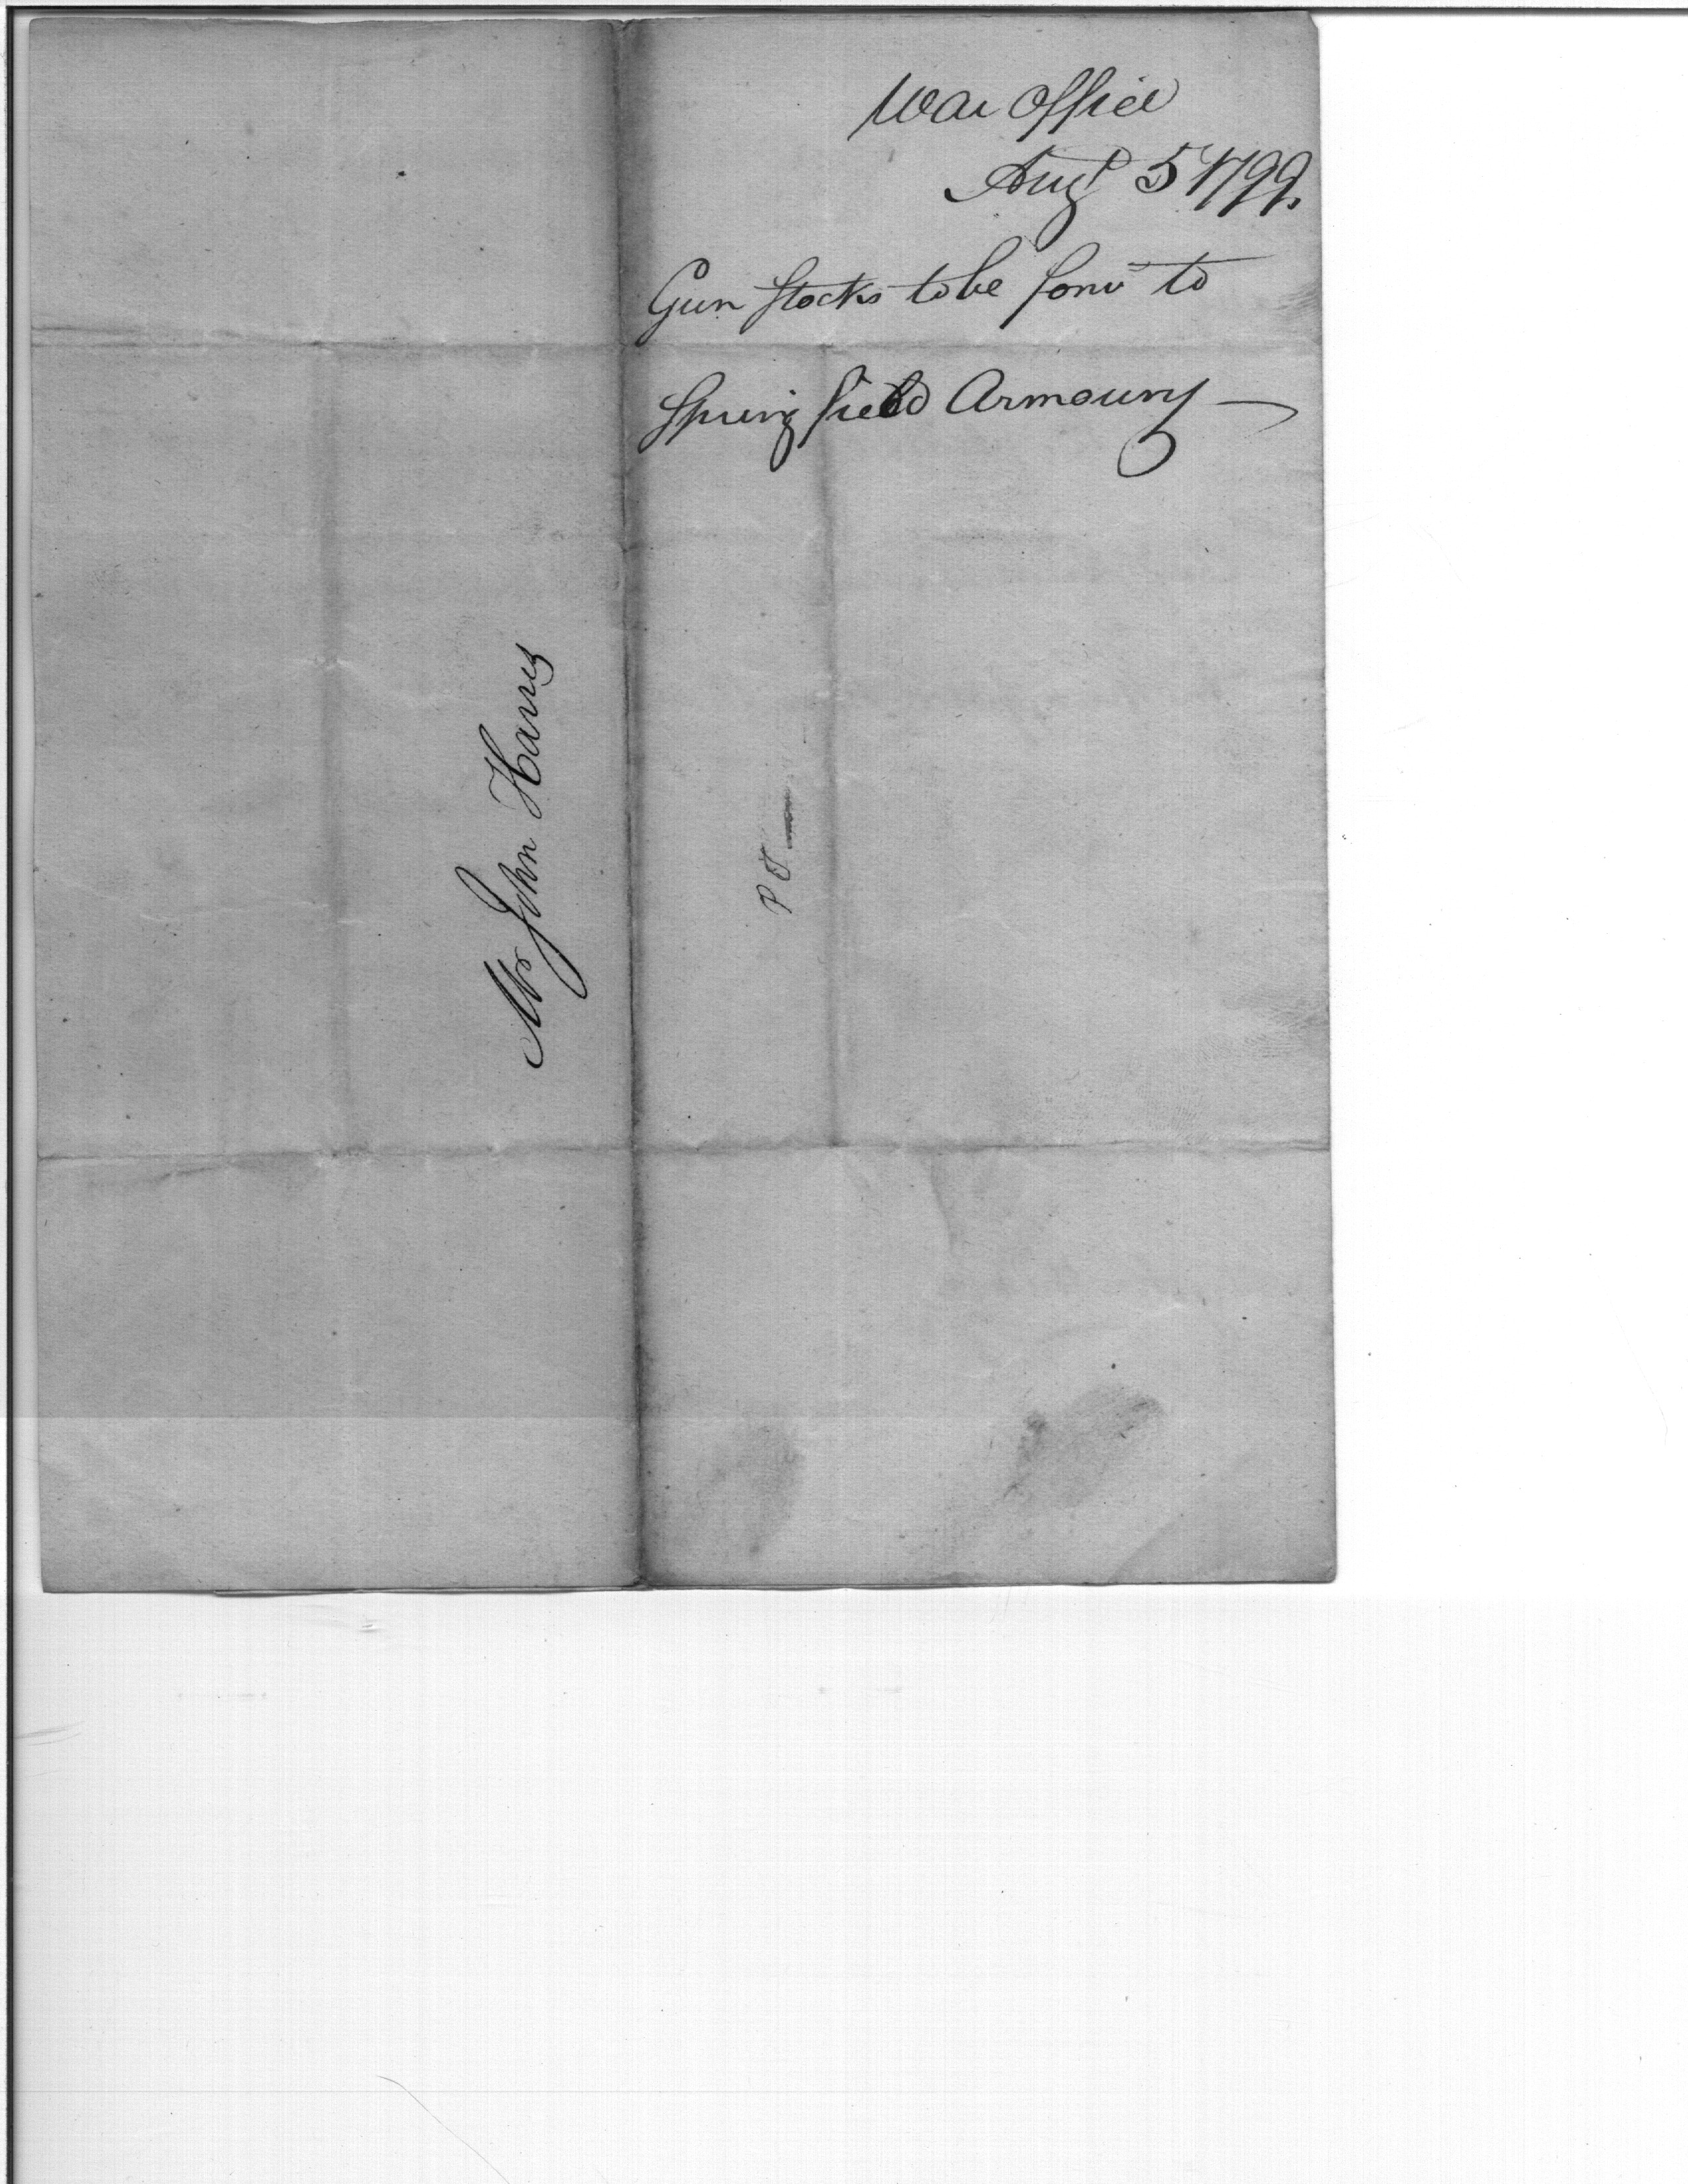 War Office
Augt 5 1799.
Gun Stocks to be forw to
Springfield Armoury
Mr John Harris
P T